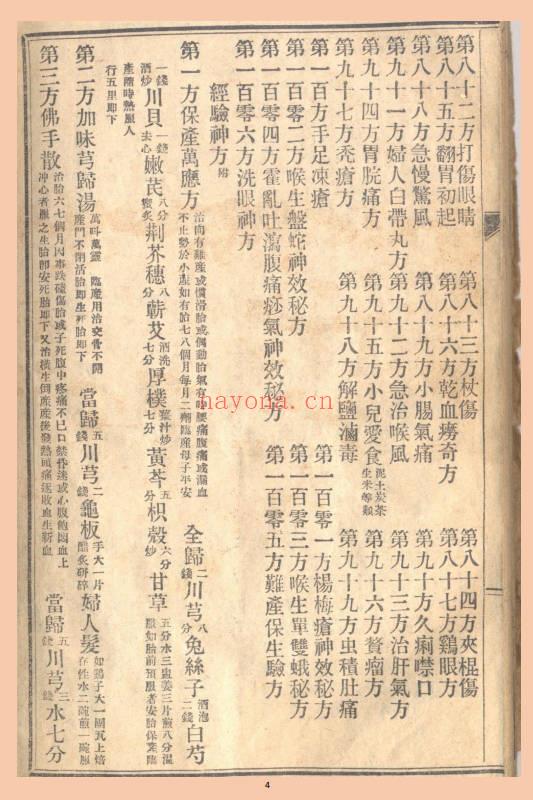 第八十二方打傷眼睛　第八十三方杖傷　第八十四方夾棍傷
第八十五方翻胃初起　第八十六方乾血癆奇方　第八十七方鷄眼方
第八十八方急慢驚風　第八十九方小腸氣痛　第九十方久痢噤口
第九十一方婦人白帶丸方　第九十二方急治喉風　第九十三方治肝氣方
第九十四方胃脘痛方　第九十五方小兒愛食泥土炭茶生米等類　第九十六方贅瘤方
第九十七方禿瘡方　第九十八方解鹽滷毒　第九十九方虫積肚痛
第一百方手足凍瘡　第一百零一方楊梅瘡神效秘方
第一百零二方喉生盤蛇神效秘方　第一百零三方喉生單雙蛾秘方
第一百零四方霍亂吐瀉腹痛痧氣神效秘方　第一百零五方難產保生驗方
第一百零六方洗眼神方
經驗神方附
第一方保產萬應方　治向有難產或慣滑胎或偶動胎氣有腰痛腹痛或漏血不止勢於小產如有胎七八個月每月二劑臨產母子平安　全歸二錢川芎八分兔絲子酒泡二錢白芍
一錢酒炒川貝一錢去心嫩芪八分蜜炙荆芥穗八分蘄艾酒洗七分厚樸薑汁炒七分黃芩五分枳殼六分炒甘草五分水三盅姜三片煎八分溫服如胎前預服者安胎保業臨
產隨時熱服人行五里即下
第二方加味芎歸湯　萬叫萬靈　臨產用治交骨不開產門不閉活胎即生死胎即下　當歸五錢川芎二錢龜板手大一片醋炙研碎婦人髮如鷄子大一團瓦上焙存性水二碗煎一碗服
第三方佛手散　治胎六七個月因事跌磕傷胎或子死腹中疼痛不已口禁昏迷或心腹飽悶血上冲心者服之生胎即安死胎即下又治橫生倒產產後發熱頭痛逐敗血生新血　當歸五錢川芎三錢水七分
nayona.cn
4